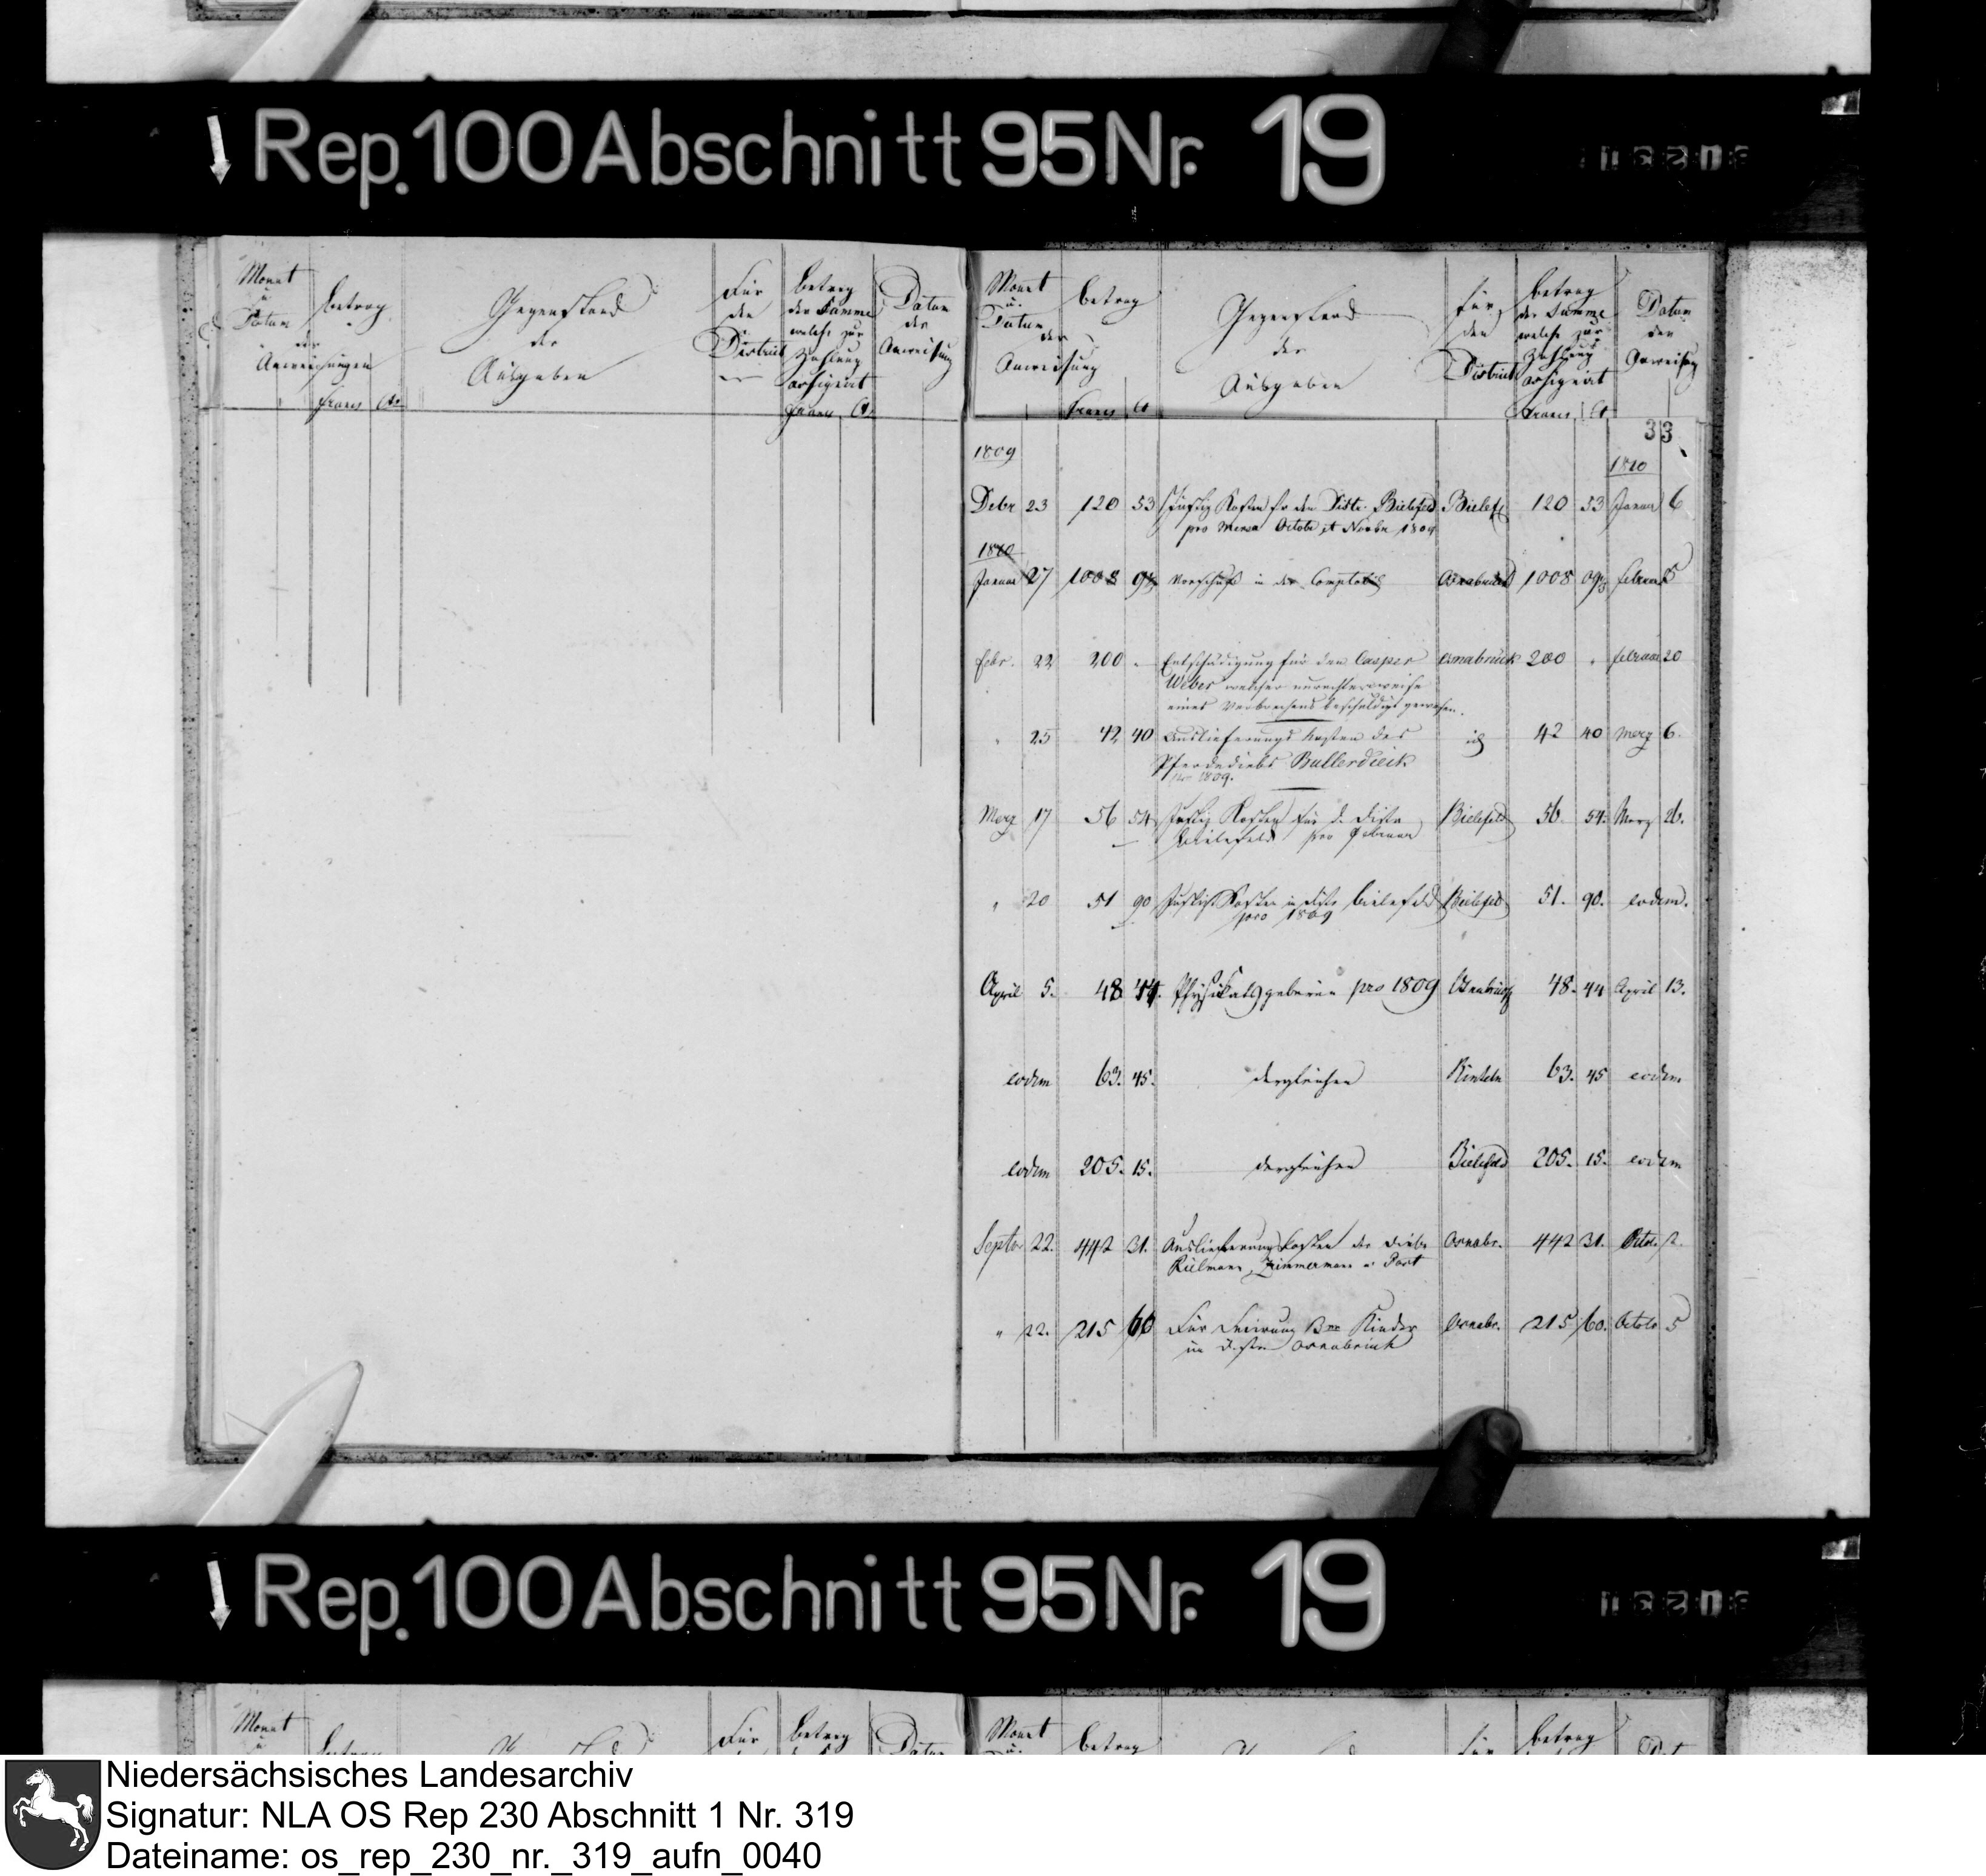 Rep. 100 Abschnitt 95 Nr. 19
Monat
u
Datum
der
Anweisungen
betrag
francs Ct.
Gegenstand
der
Ausgaben
Für
den
District
betrag
der Summe
welche zur
Zahlung
assigniert
francs Ct.
Datum
der
Anweisung
Monat
u.
Datum
der
Anweisung
betrag
francs Ct
Gegenstand
der
Ausgaben
für
den
District
betrag
der Summe
welche zur
Zahlung
assignirt
francs Ct
Datum
der
Anweisung
33
1809
1810
Debr 23 120 53 Justiz Kosten fr den Distr. Bielefeld Bielef 120 53 Januar 6
pro Mense Octobr et Novbr 1809
1810
Januar 27 1008 Vorschuß in der Osnabrück 1008 februar 5
febr. 22 200 - Entschädigung für den Casper Osnabrück 200 " februar 20
Weber welcher unrechterweise
eines Verbrechens beschuldigt gewesen.
" 25 42 40 Auslieferungs Kosten des id 42 40 Merz 6.
Pferdediebs Bullerdieck
pro 1809.
Merz 17 56 54 Justiz Kosten für d. Distr Bielefeld 56 54. Merz 26.
Bielefeld pro Februar
" 20 51 90 Justiz Kosten in Distr bielefeld Bielefeld 51. 90. eodem.
pro 1809
April 5. 48 44. Physikats gebüren pro 1809 Osnabrück 48. 44 April 13.
eodem 63. 45. dergleichen Rinteln 63. 45 eodem
eodem 205. 15. dergleichen Bielefeld 205. 15. eodem
Septbr 22. 442 31. Auslieferungs kosten der diebe Osnabr. 442 31. Octbr. 2.
Rielmann, Zimmermann u. Post
" 22. 215 60 Für Kinder Osnabr. 215 60. Octobr 5
im Distr Osnabrück
Rep. 100 Abschnitt 95 Nr. 19
Monat
u
Für
betrag
Datum
Monat
u.
betrag
für
betrag
Niedersächsisches Landesarchiv
Signatur: NLA OS Rep 230 Abschnitt 1 Nr. 319
Dateiname: os_rep_230_nr._319_aufn_0040